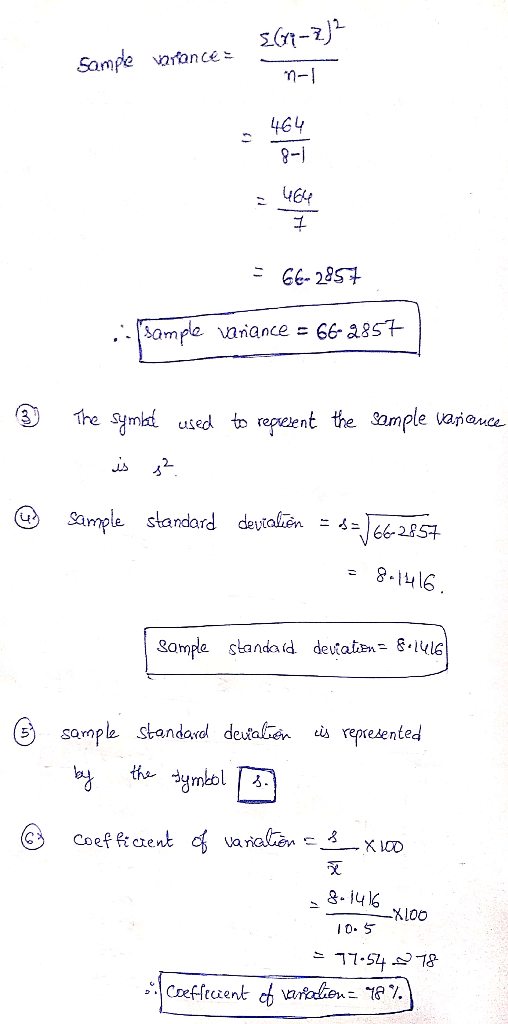 Sample variance = Σ(xi-x̄)²
n-1
= 464
8-1
= 464
7
= 66.2857
∴ sample variance = 66.2857
③ The symbol used to represent the sample variance
is s².
④ Sample standard deviation = s = √66.2857
= 8.1416.
Sample standard deviation = 8.1416
⑤ sample standard deviation is represented
by the symbol s.
⑥ coefficient of variation = s/x̄ × 100
= 8.1416/10.5 × 100
= 77.54 ≈ 78
∴ Coefficient of variation = 78%.